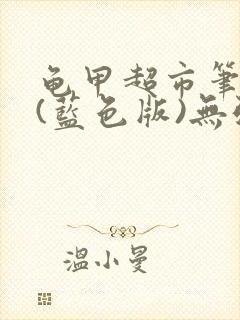 龟甲超市筆
(藍色版)無
溫小曼